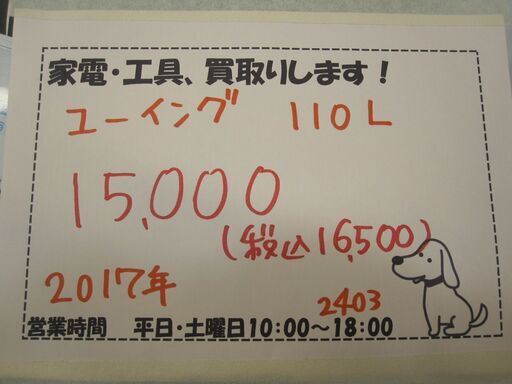 家電・工具、買取りします！
ユーイング 110L
15,000
(税込16,500)
2017年
2403
営業時間 平日・土曜日10:00～18:00